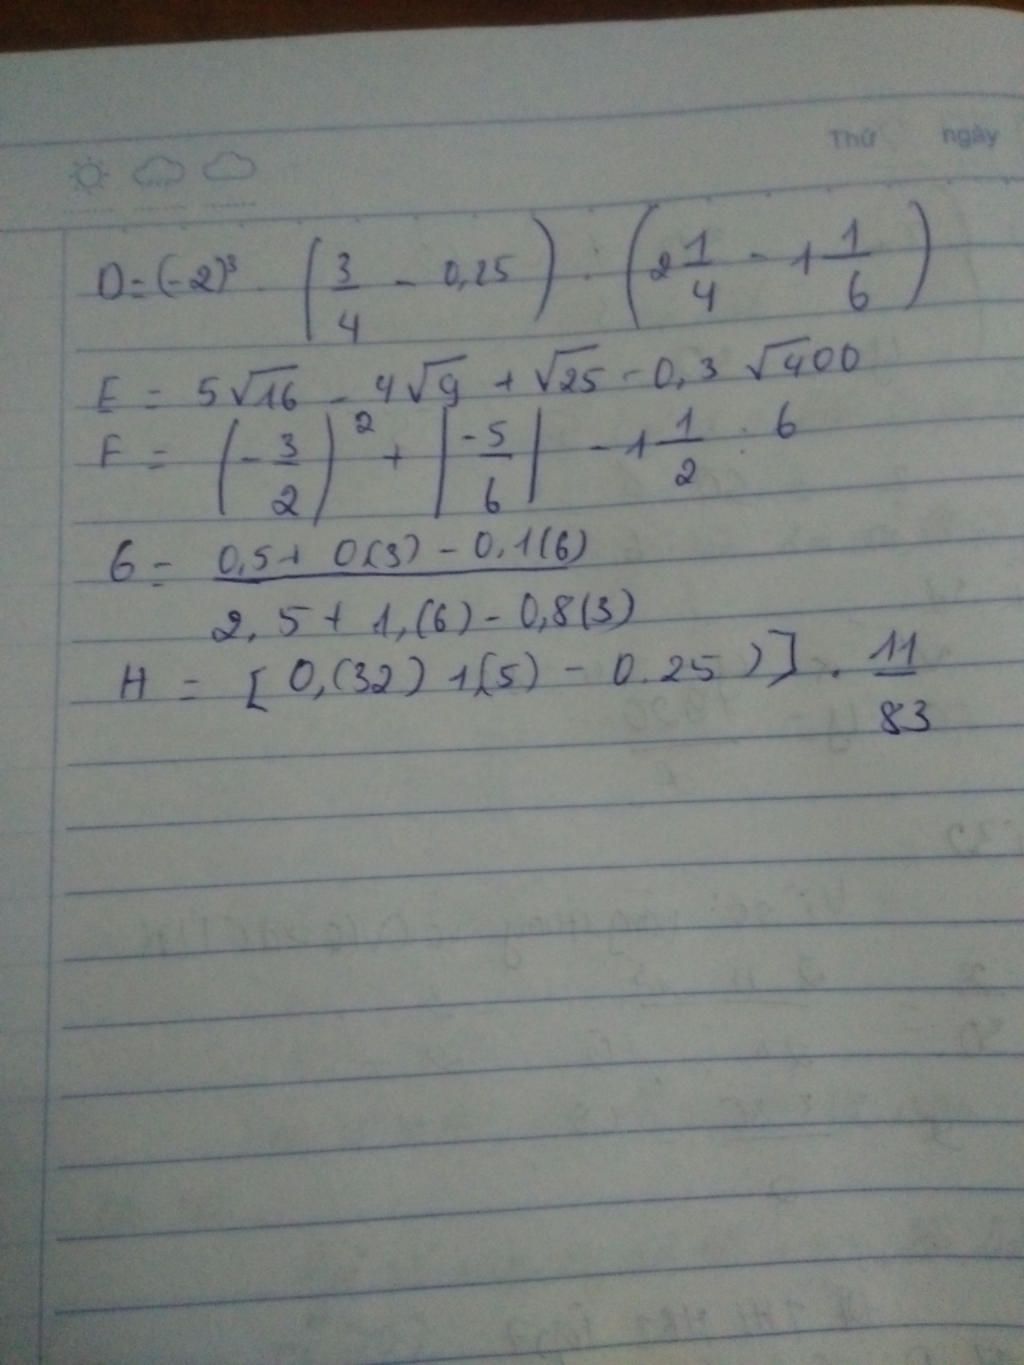 Thứ ngày
D = (-2)³ . (3/4 - 0,25) . (2 1/4 - 1 1/6)
E = 5√16 - 4√9 + √25 - 0,3 √400
F = (-3/2)² + |-5/6| - 1 1/2 : 6
G = (0,5 + 0(3) - 0,1(6)) / (2,5 + 1,(6) - 0,8(3))
H = [0,(32) 1(5) - 0.25)] . 11/83